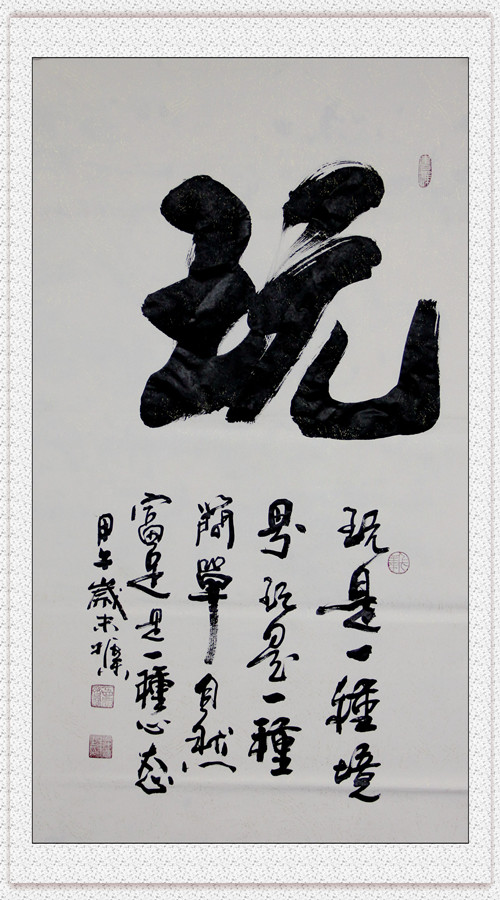 玩
玩是一種境
界玩是一種
簡單自然
富足是一種心态
甲午歲末